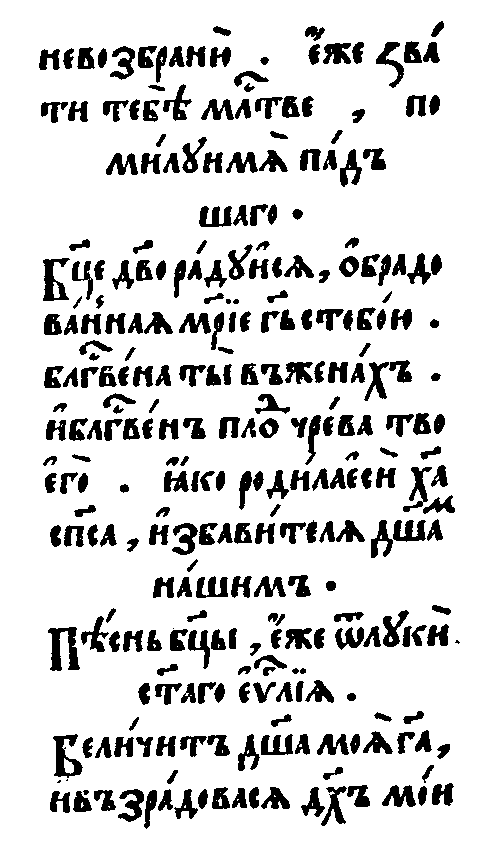 невозбранно̀ . є҆́же ѕва́
ти тебѣ̀ мл҃тве , по
ми́лꙋи мѧ̀ па́дъ
шаго .
Бц҃е дв҃о ра́дꙋи̑сѧ , о҆брадо
ва́ннаѧ мр҃їе гд҃ь с тобо́ю .
блг҃ве́на ты̀ в женах́ъ .
и҆ блг҃ве́нъ пло́д чре́ва тво
є҆го̀ . ꙗ҆́ко роди́ла є҆сѝ хр҃та
сп҃са , и҆збави́телѧ дш҃ам
на́шимъ .
Пѣ́снь бц҃ы , є҆́же ѿ лꙋкѝ
ст҃аго є҆ѵ҃лїѧ .
Вели́читъ дш҃а моѧ̀ гд҃а ,
и възра́довасѧ дх҃ъ мо́и